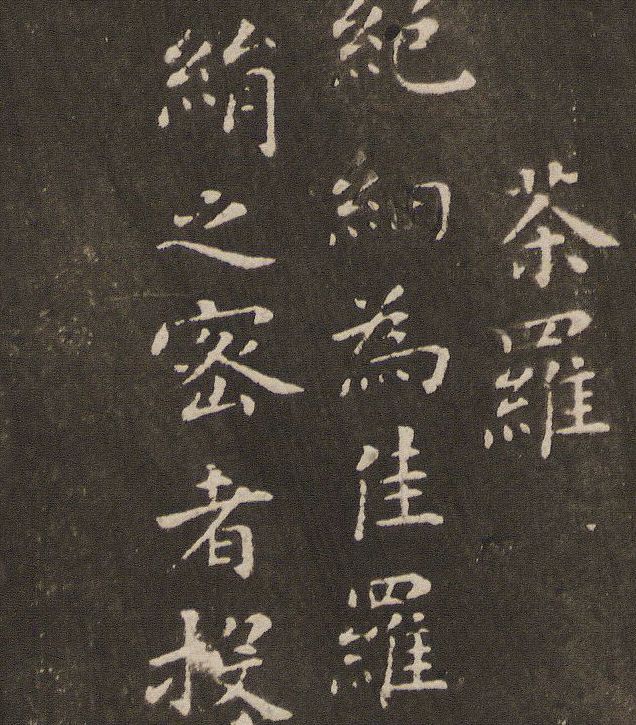 茶羅
絕細為佳羅
絹之密者投